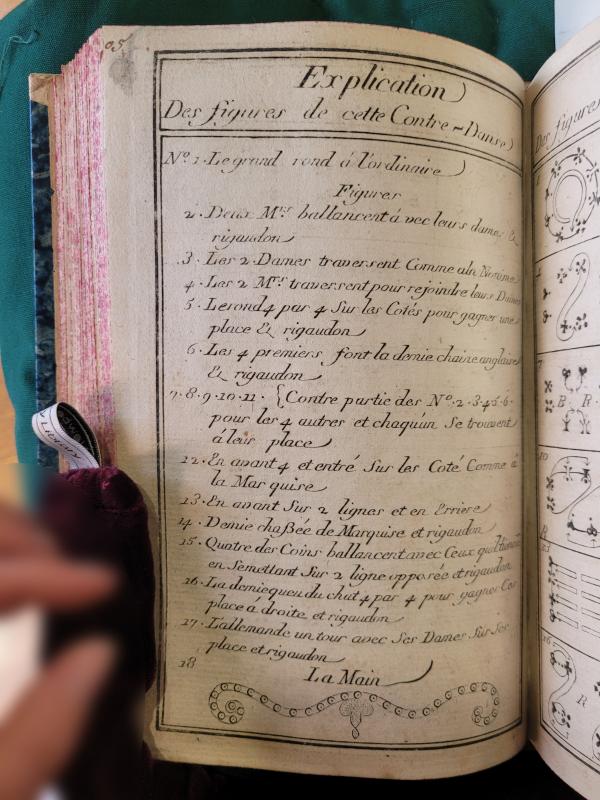 95
Explication
Des figures de cette Contre-Danse
Nº. 1. Le grand rond à l'ordinaire
Figures
2. Deux Mrs ballancent à vec leurs dames &
rigaudon
3. Les 2 Dames traversent Comme aln
4. Les 2 Mrs traversent pour rejoindre leurs Dames
5. Le rond 4 par 4 Sur les Cotés pour gagner une
place & rigaudon
6. Les 4 premiers font la demie chaine anglaise
& rigaudon
7. 8. 9. 10. 11. { Contre partie des Nº. 2. 3. 4. 5. 6.
pour les 4 autres et chaqu'un Se trouvent
à leur place
12. En avant 4 et entré Sur les Coté Comme à
la Marquise
13. En avant Sur 2 lignes et en Errière
14. Demie chaßée de Marquise et rigaudon
15. Quatre des Coins ballancent avec Ceux
en Semettant Sur 2 ligne opposée et rigaudon
16. La demie queu du chat 4 par 4 pour gagner
place a droite et rigaudon
17. L'allemande un tour avec Ses Dames Sur Ses
place et rigaudon
18
La Main
Des figures
1
R
B R
10
R
R
Library